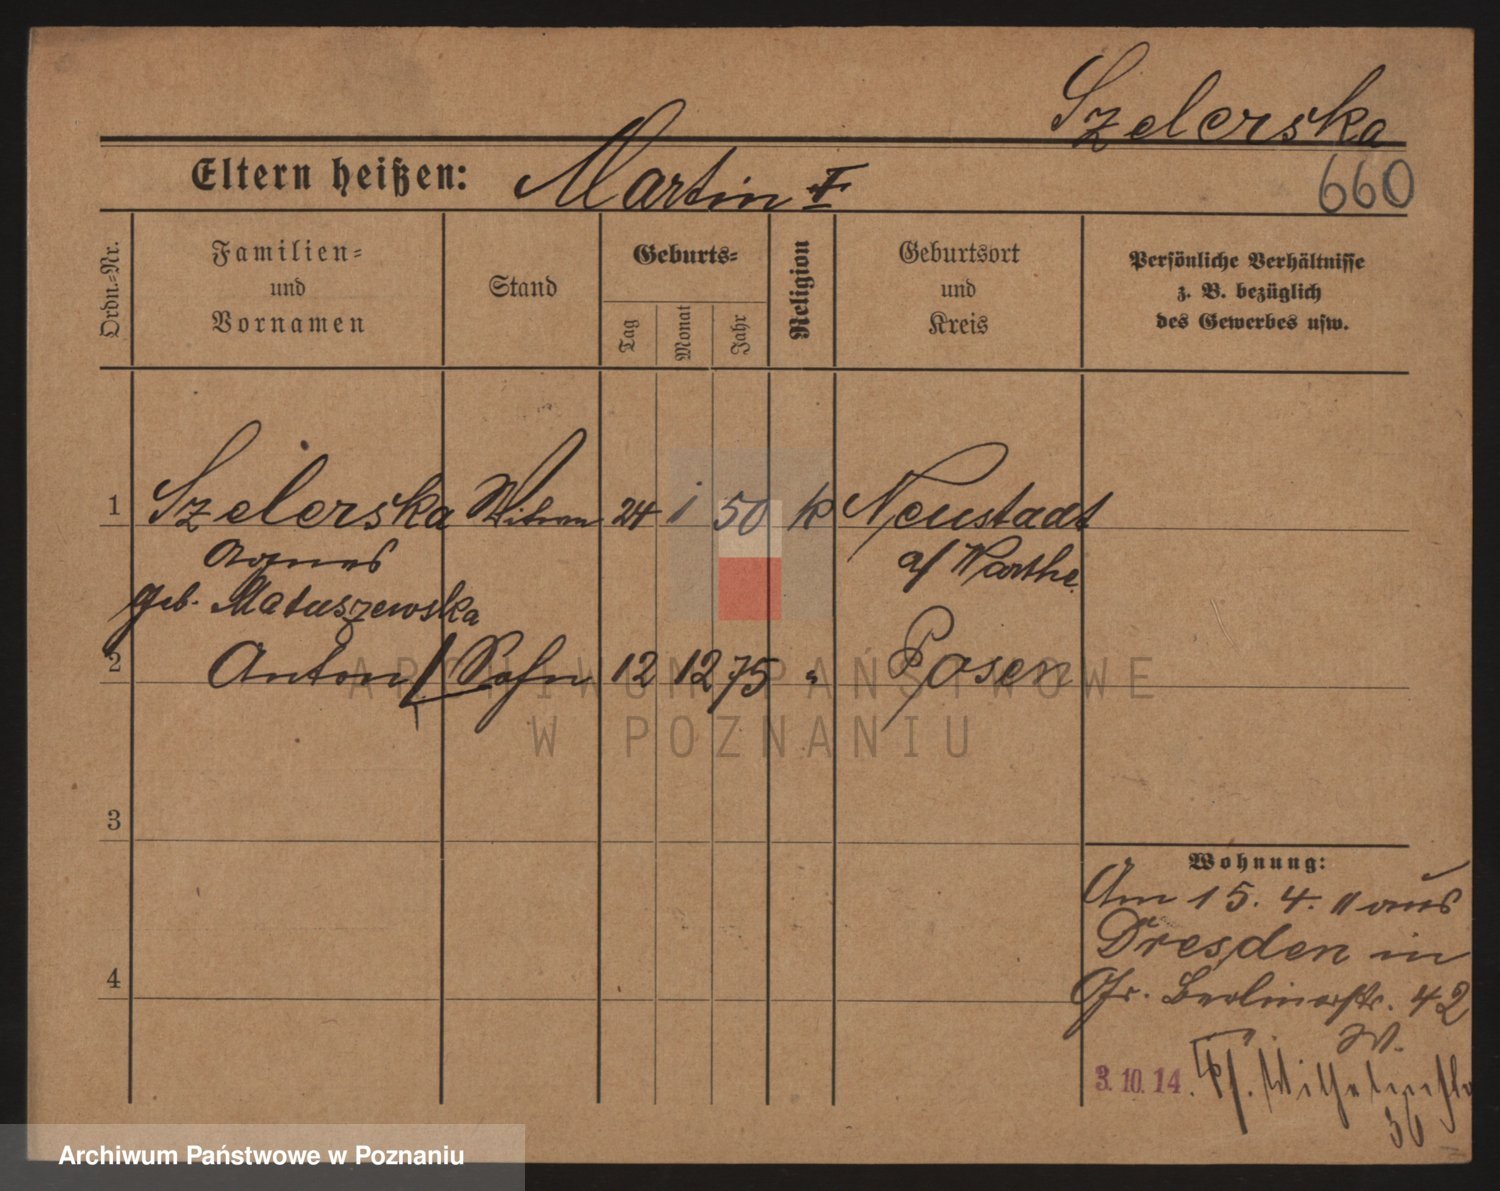 Szelerska
Eltern heißen: Martin I
660
Ordn.-Nr.
Familien-
und
Vornamen
Stand
Geburts-
Tag
Monat
Jahr
Religion
Geburtsort
und
Kreis
Persönliche Verhältnisse
z. B. bezüglich
des Gewerbes usw.
1 Szelerska Witwe 24 1 50 k Neustadt
Agnes a/ Warthe
geb. Mataszewska
2 Anton Sohn 12 12 75 " Posen
3
4
Wohnung:
Am 15. 4. 11 aus
Dresden in
Gr. Berlinerstr. 42
W.
3.10.14. Wilhelmstr
36
ARCHIWUM PAŃSTWOWE
W POZNANIU
Archiwum Państwowe w Poznaniu